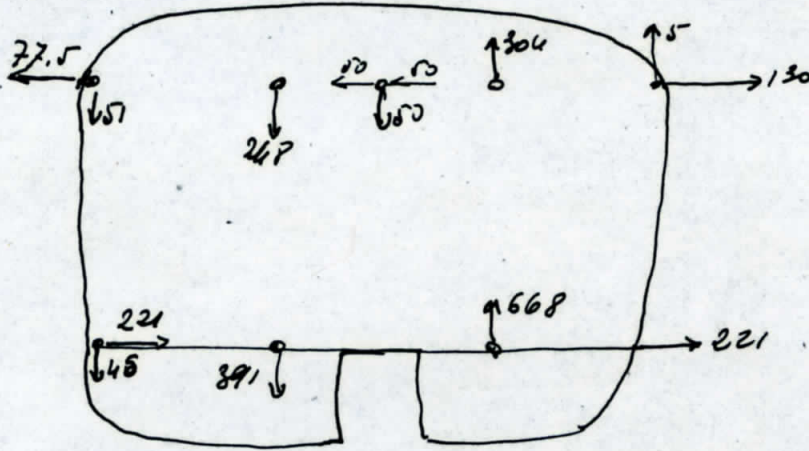 77.5
51
248
50
50
50
304
5
130
221
45
391
668
221